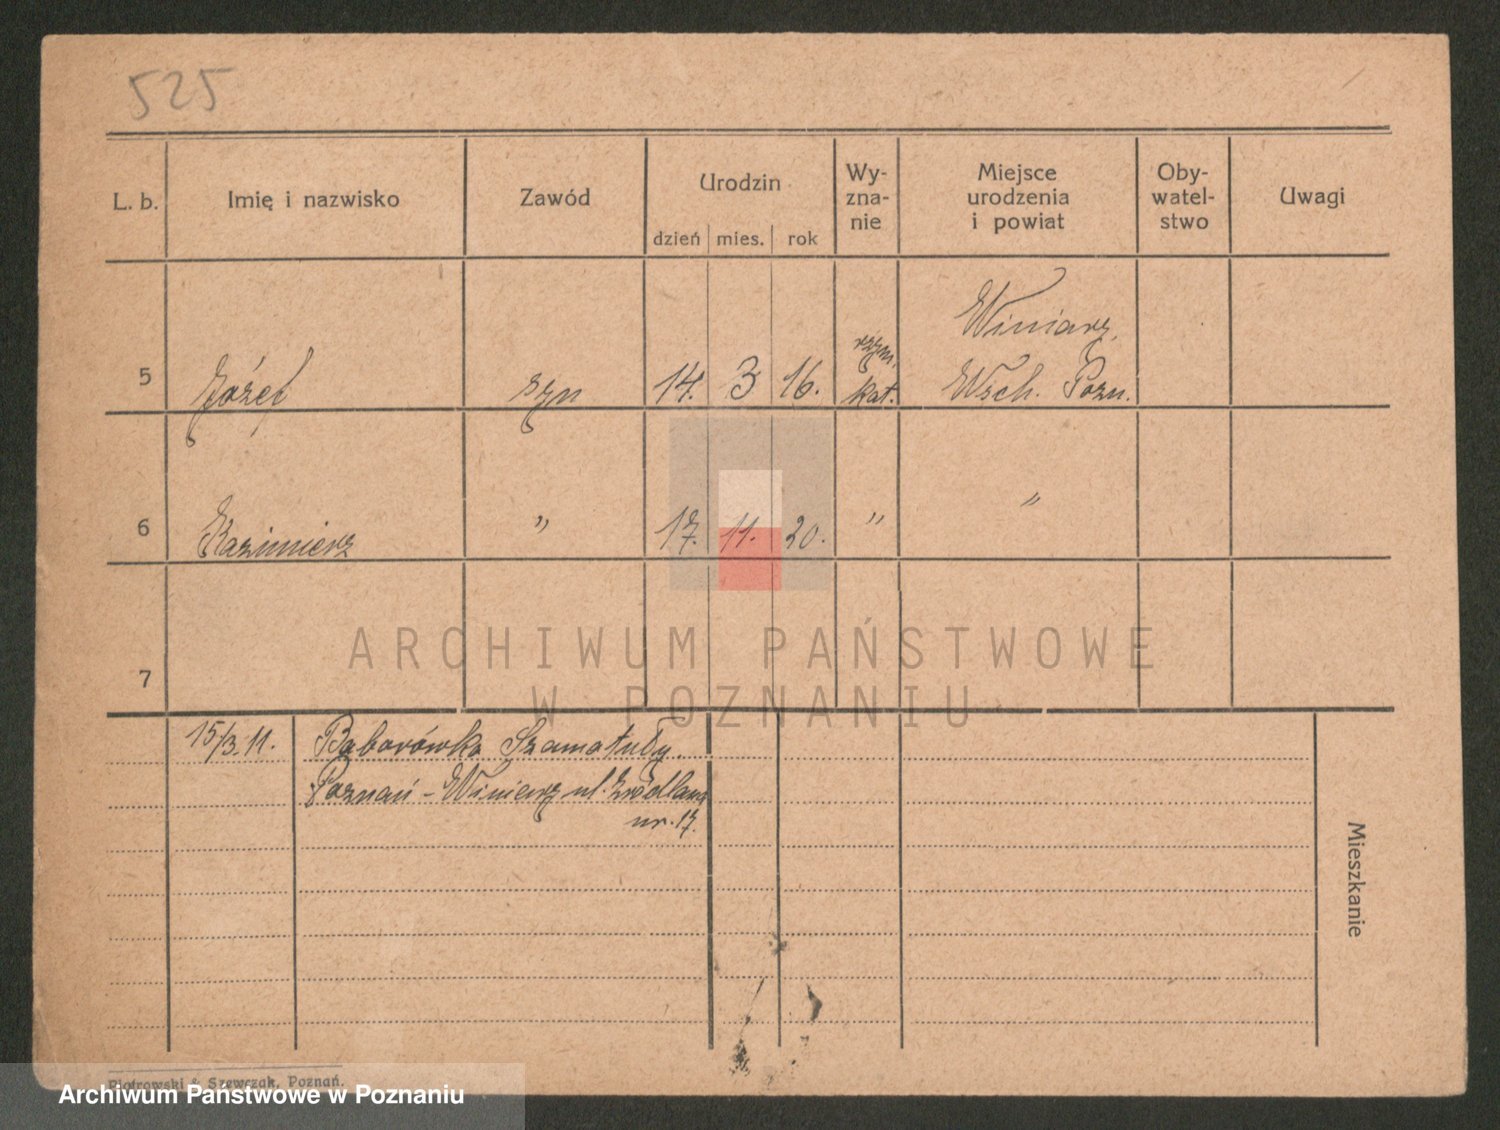 525
L. b. Imię i nazwisko Zawód Urodzin Wy-zna-nie Miejsce urodzenia i powiat Oby-watel-stwo Uwagi
dzień mies. rok
Winiary
5 Józef syn 14. 3 16. rzym. kat. Wsch. Pozn.
6 Kazimierz " 17. 11. 20. " "
7
ARCHIWUM PAŃSTWOWE
W POZNANIU
15/3.11. Baborówko Szamotuły.
Poznań - Winiary ul. Źródlana
nr. 17.
Mieszkanie
Piotrowski & Szewczak, Poznań.
Archiwum Państwowe w Poznaniu